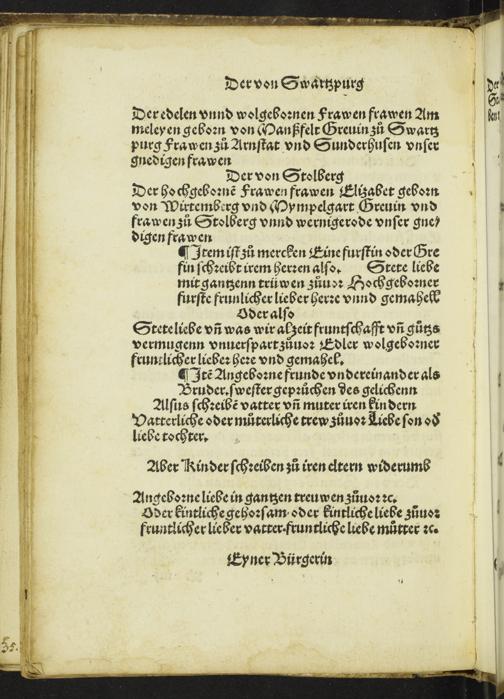 Der von Swartzpurg
Der edelen vnnd wolgebornen Frawen frawen Am
meleyen geborn von Manßfelt Grevin zů Swartz
purg Frawen zů Arnstat vnd Sunderhusen vnser
gnedigen frawen
Der von Stolberg
Der hochgebornē Frawen frawen Elizabet geborn
von Wirtemberg vnd Mympelgart Grevin vnd
frawen zů Stolberg vnnd wernigerode vnser gne/
digen frawen
¶ Item ist zů mercken Eine furstin oder Gre
fin schreibt irem herren also. Stete liebe
mit gantzenn trüwen zůuor Hochgeborner
furste frunlicher lieber herre vnnd gemahell
Oder also
Stete liebe vn̄ was wir alzeit fruntschafft vn̄ gůtzs
vermugenn vnuerspart zůuor Edler wolgeborner
fruntlicher lieber here vnd gemahel.
¶ Itē Angeborne frunde vndereinander als
Bruder. swester geprůchen des gelichenn
Alsus schreibē vatter vn̄ muter iren kindern
Vatterliche oder můterliche trew zůuor Liebe son od̄
liebe tochter.
Aber Kinder schreiben zů iren eltern widerumb
Angeborne liebe in gantzen treuwen zůuor ⁊c.
Oder kintliche gehorsam. oder kintliche liebe zůuor
fruntlicher lieber vatter. fruntliche liebe můtter ⁊c.
Eyner Bürgerin
Der